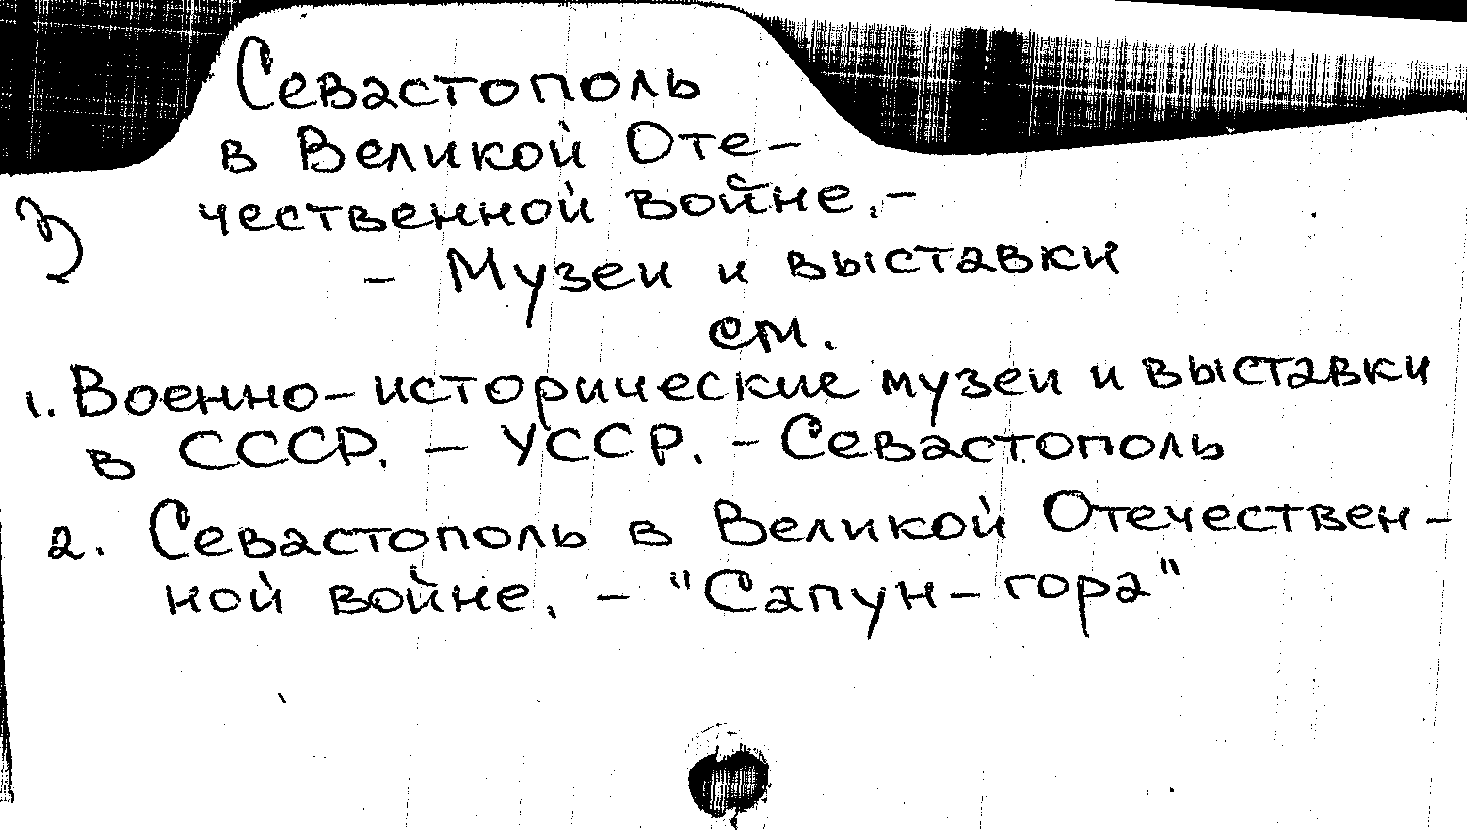 Севастополь
в Великой Оте-
чественной войне.-
- Музеи и выставки
см.
1. Военно-исторические музеи и выставки
в СССР. - УССР. - Севастополь
2. Севастополь в Великой Отечествен-
ной войне. - "Сапун-гора"